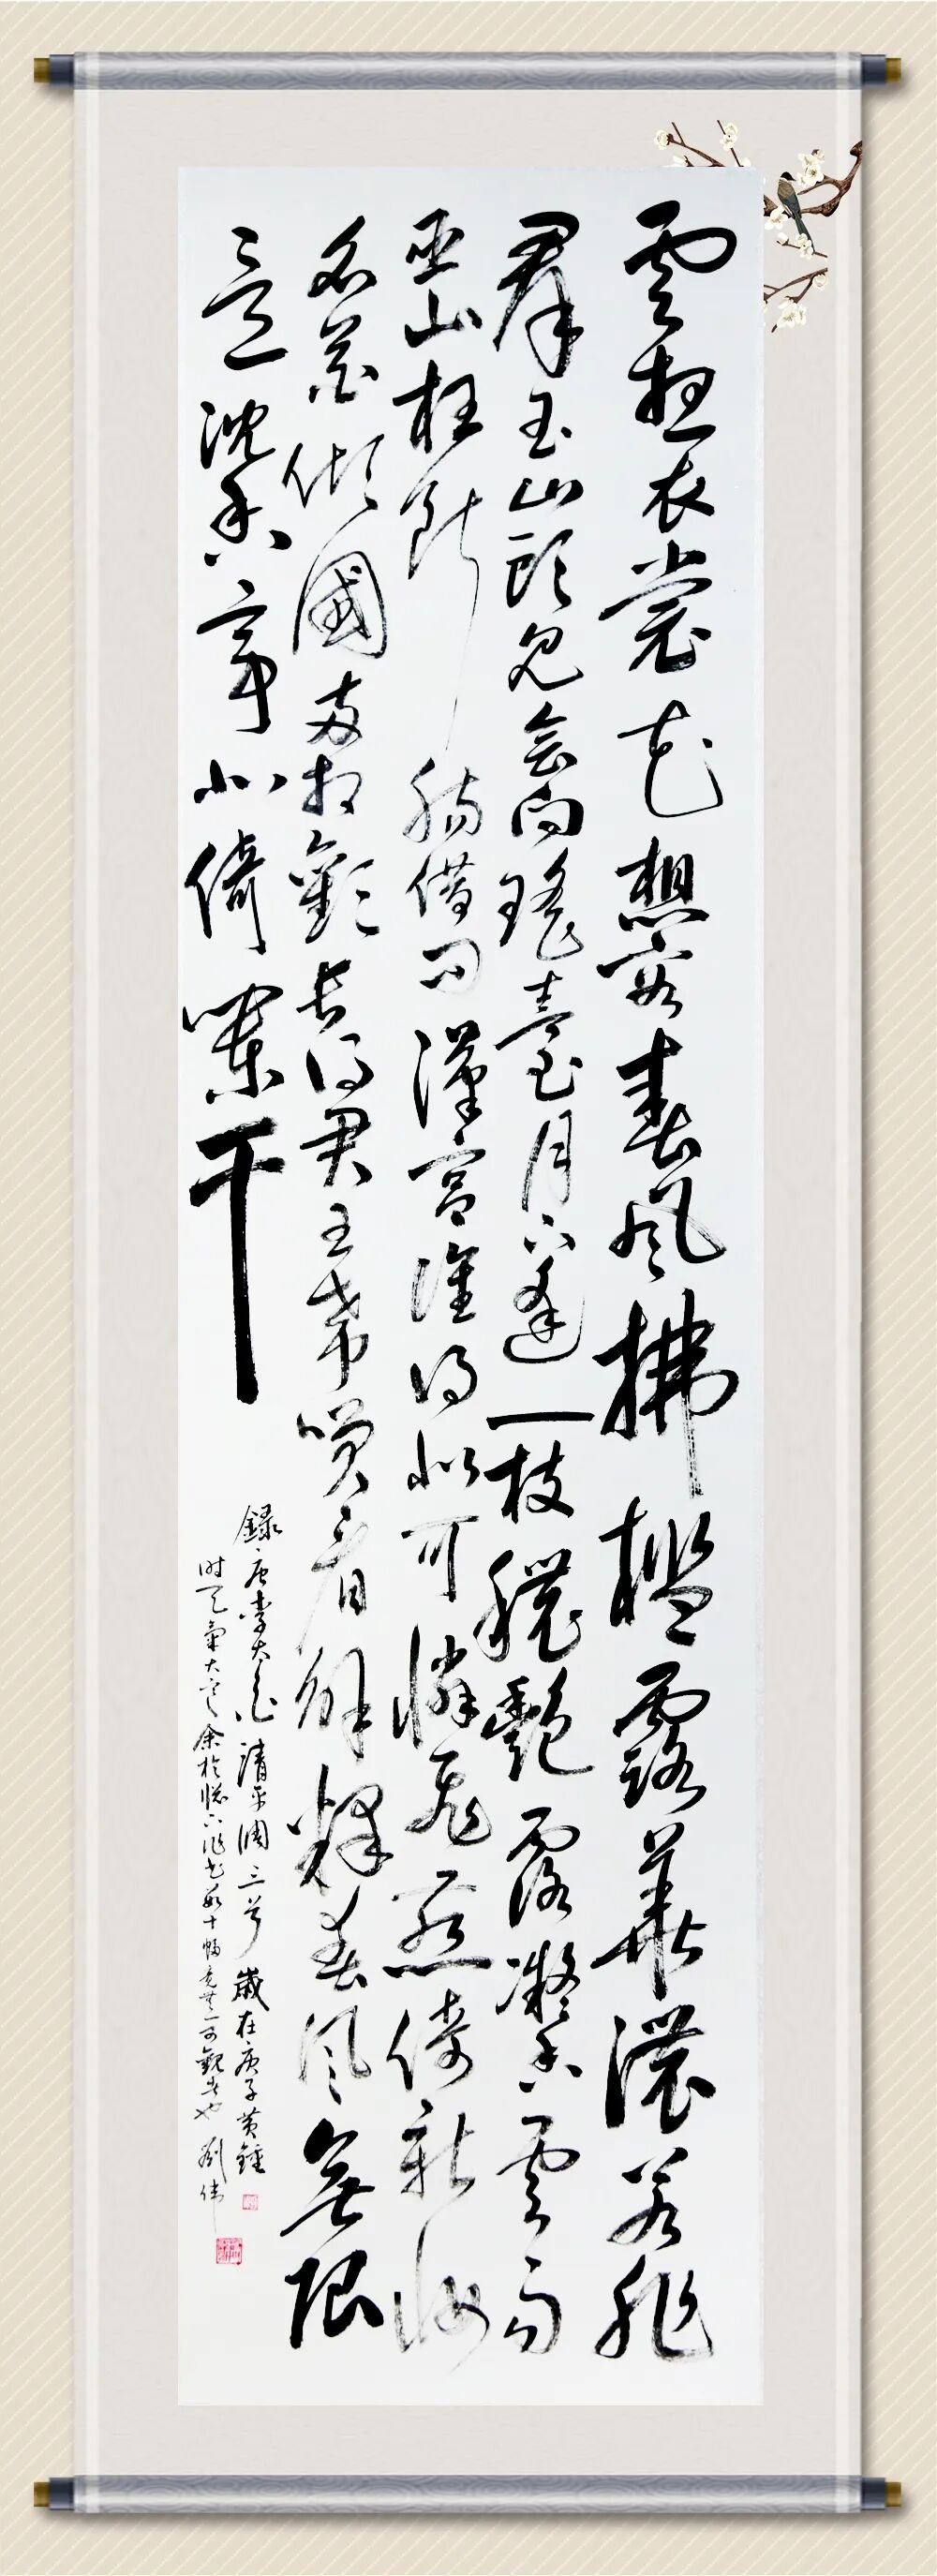 雲想衣裳花想容春風拂檻露華濃若非
群玉山頭見會向瑤臺月下逢一枝穠艷露凝香雲雨
巫山枉斷腸借問漢宮誰得似可憐飛燕倚新妝
名花傾國兩相歡長得君王帶笑看解釋春風無限
意沈香亭北倚闌干
錄唐李太白清平調三首歲在庚子黃鐘
時天氣大寒余於窗下作書數十幅竟無一可觀者也劉偉